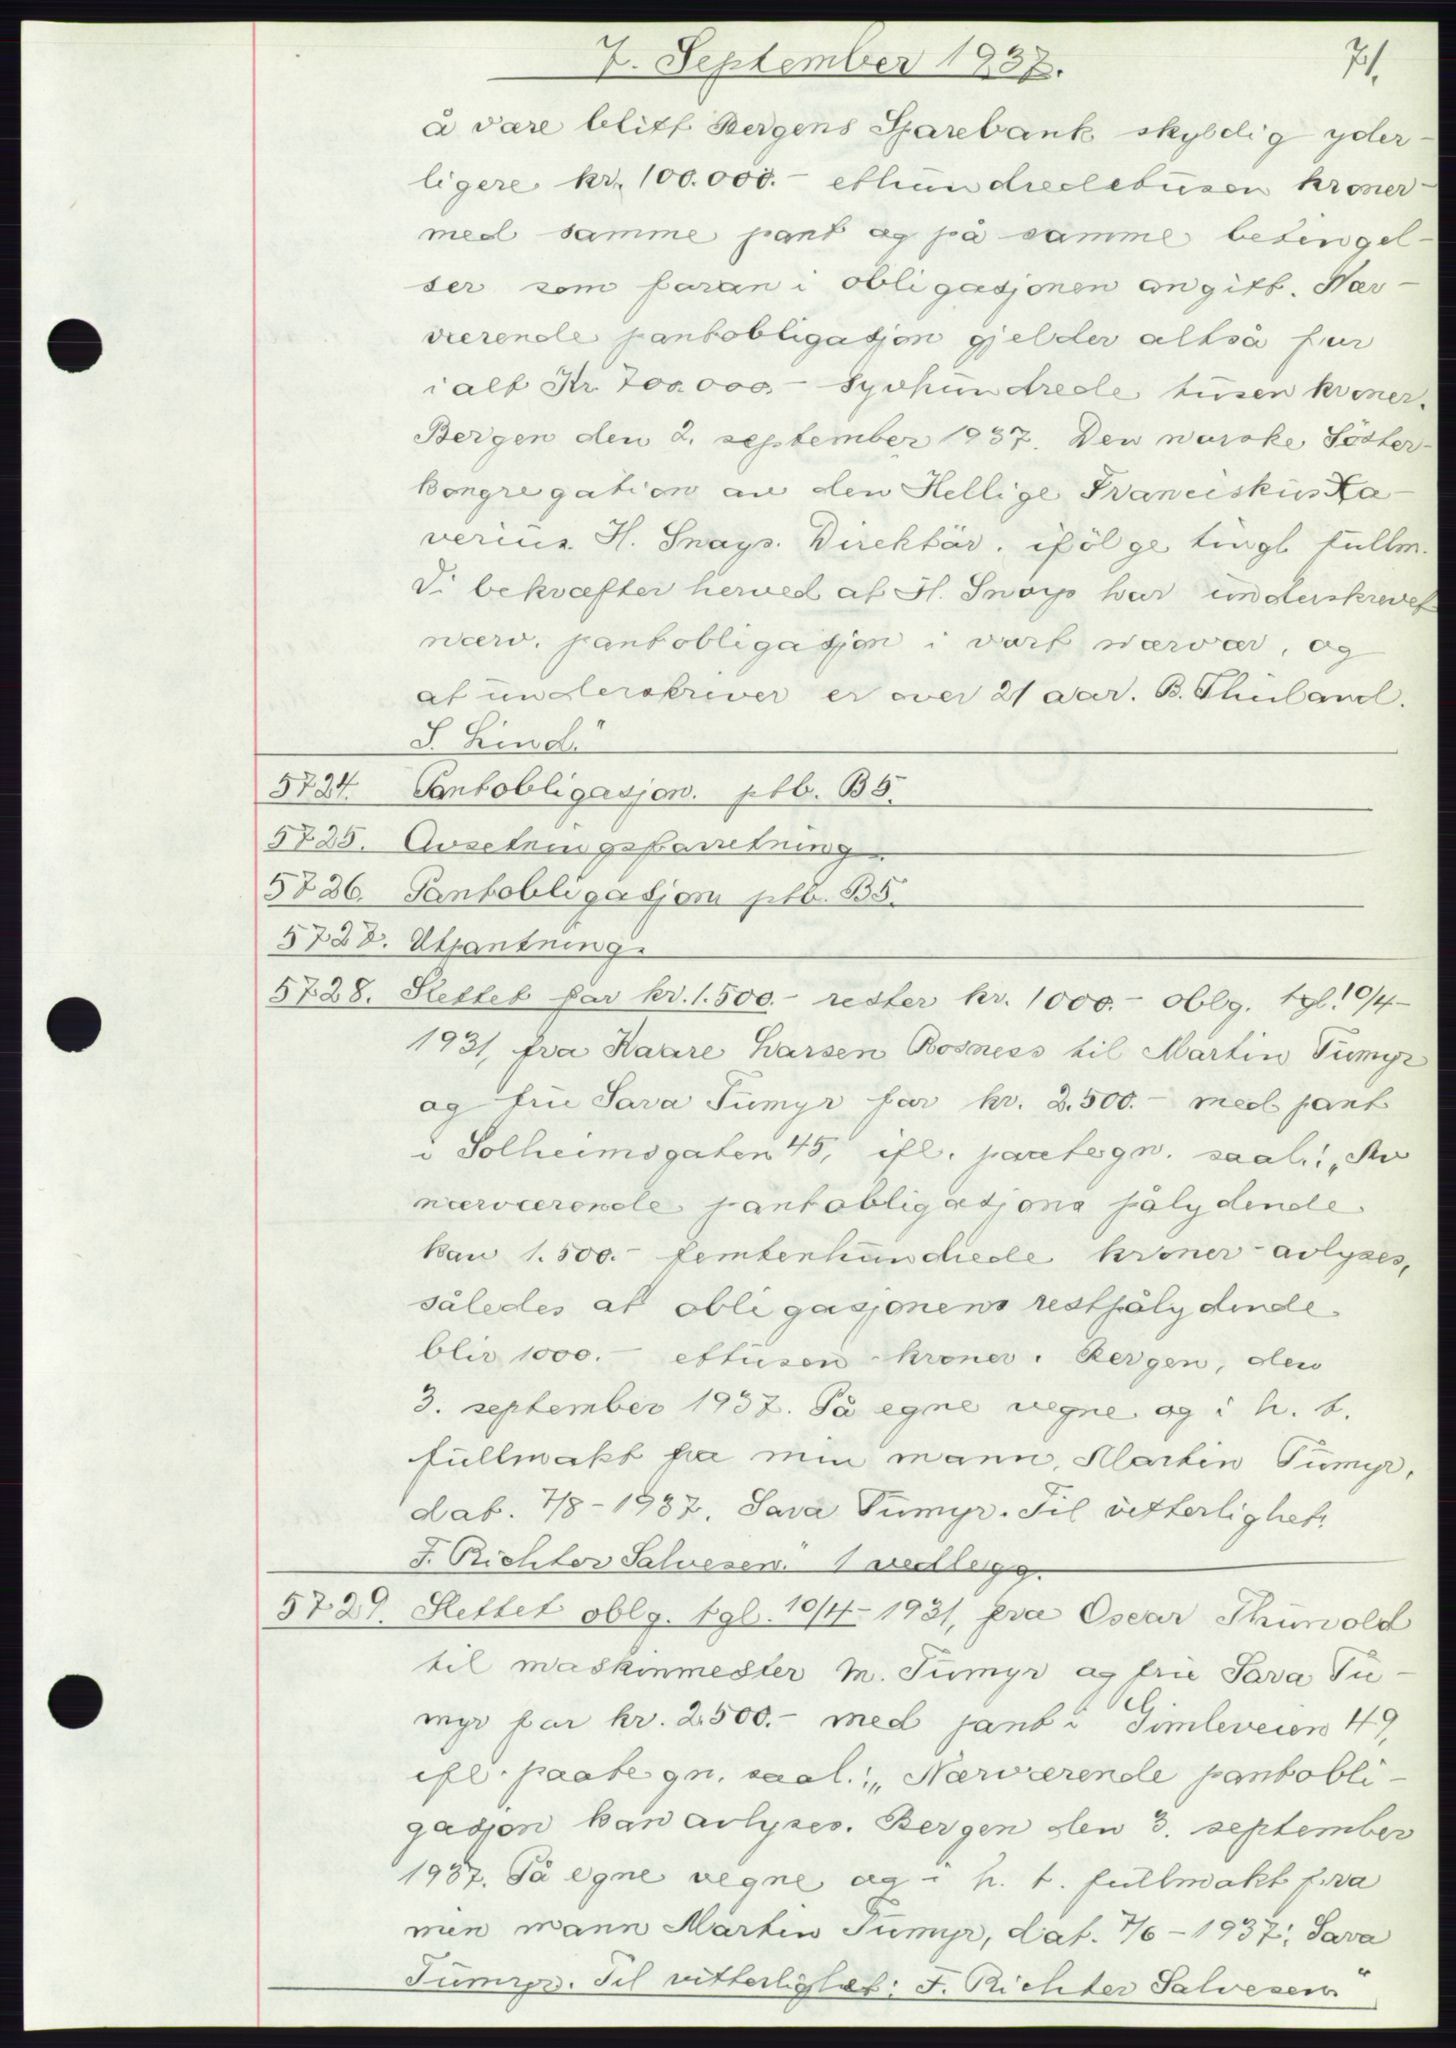 7. September 1937.
71.
å være blitt Bergens Sparebank skyldig yder-
ligere kr. 100.000.- etthundredetusen kroner-
med samme pant og på samme betingel-
ser som foran i obligasjonen angitt. Nær-
værende pantobligasjon gjelder altså for
ialt Kr. 700.000.- syvhundrede tusen kroner.
Bergen den 2. september 1937. Den norske Söster-
kongregation av den Hellige Franciskus Xa-
verius. H. Snoys. Direktör. ifölge tingl. fullm.
Vi bekræfter herved at H. Snoys har underskrevet
nærv. pantobligasjon i vort nærvær, og
at underskriver er over 21 aar. B. Thuland.
S. Lind."
5724. Pantobligasjon. ptb. B5.
5725. Avsetningsforretning.
5726. Pantobligasjon ptb. B5.
5727. Utpantning.
5728. Slettet for kr. 1.500.- rester kr. 1000.- oblg. tgl. 10/4-
1931, fra Kaare Larsen Rosness til Martin Tumyr
og frue Sara Tumyr for kr. 2.500.- med pant
i Solheimsgaten 45, ifl. paategn. saal.: „Av
nærværende pantobligasjons pålydende
kan 1.500.- femtenhundrede kroner - avlyses,
således at obligasjonens restpålydende
blir 1000.- ettusen - kroner. Bergen, den
3. september 1937. På egne vegne og i h. t.
fullmakt fra min mann, Martin Tumyr,
dat. 7/8-1937. Sara Tumyr. Til vitterlighet:
F. Richter Salvesen." 1 vedlegg.
5729. Slettet oblg. tgl. 10/4-1931, fra Oscar Thunold
til maskinmester M. Tumyr og frue Sara Tu-
myr for kr. 2.500.- med pant i Gimleveien 49,
ifl. paategn. saal.: „Nærværende pantobli-
gasjon kan avlyses. Bergen den 3. september
1937. På egne vegne og i h. t. fullmakt fra
min mann Martin Tumyr, dat. 7/6-1937: Sara
Tumyr. Til vitterlighet: F. Richter Salvesen."